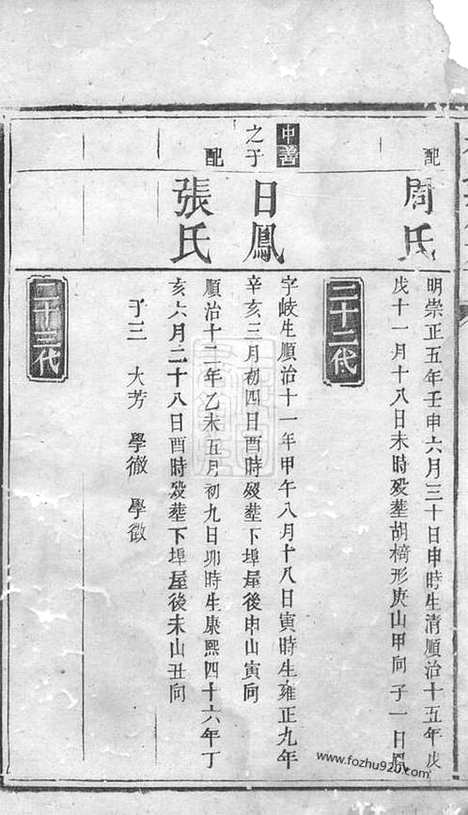 配
周氏
明崇正五年壬申六月三十日申時生清順治十五年戊
戌十一月十八日未時殁塟胡椅形庚山甲向子一日鳳
二十二代
中善
之子
日鳳
字岐生順治十一年甲午八月十八日寅時生雍正九年
辛亥三月初四日酉時殁塟下埠屋後申山寅向
配
張氏
順治十二年乙未五月初九日卯時生康熙四十六年丁
亥六月二十八日酉時殁塟下埠屋後未山丑向
子三 大芳 學徹 學徵
二十三代
www.fozhu920.com